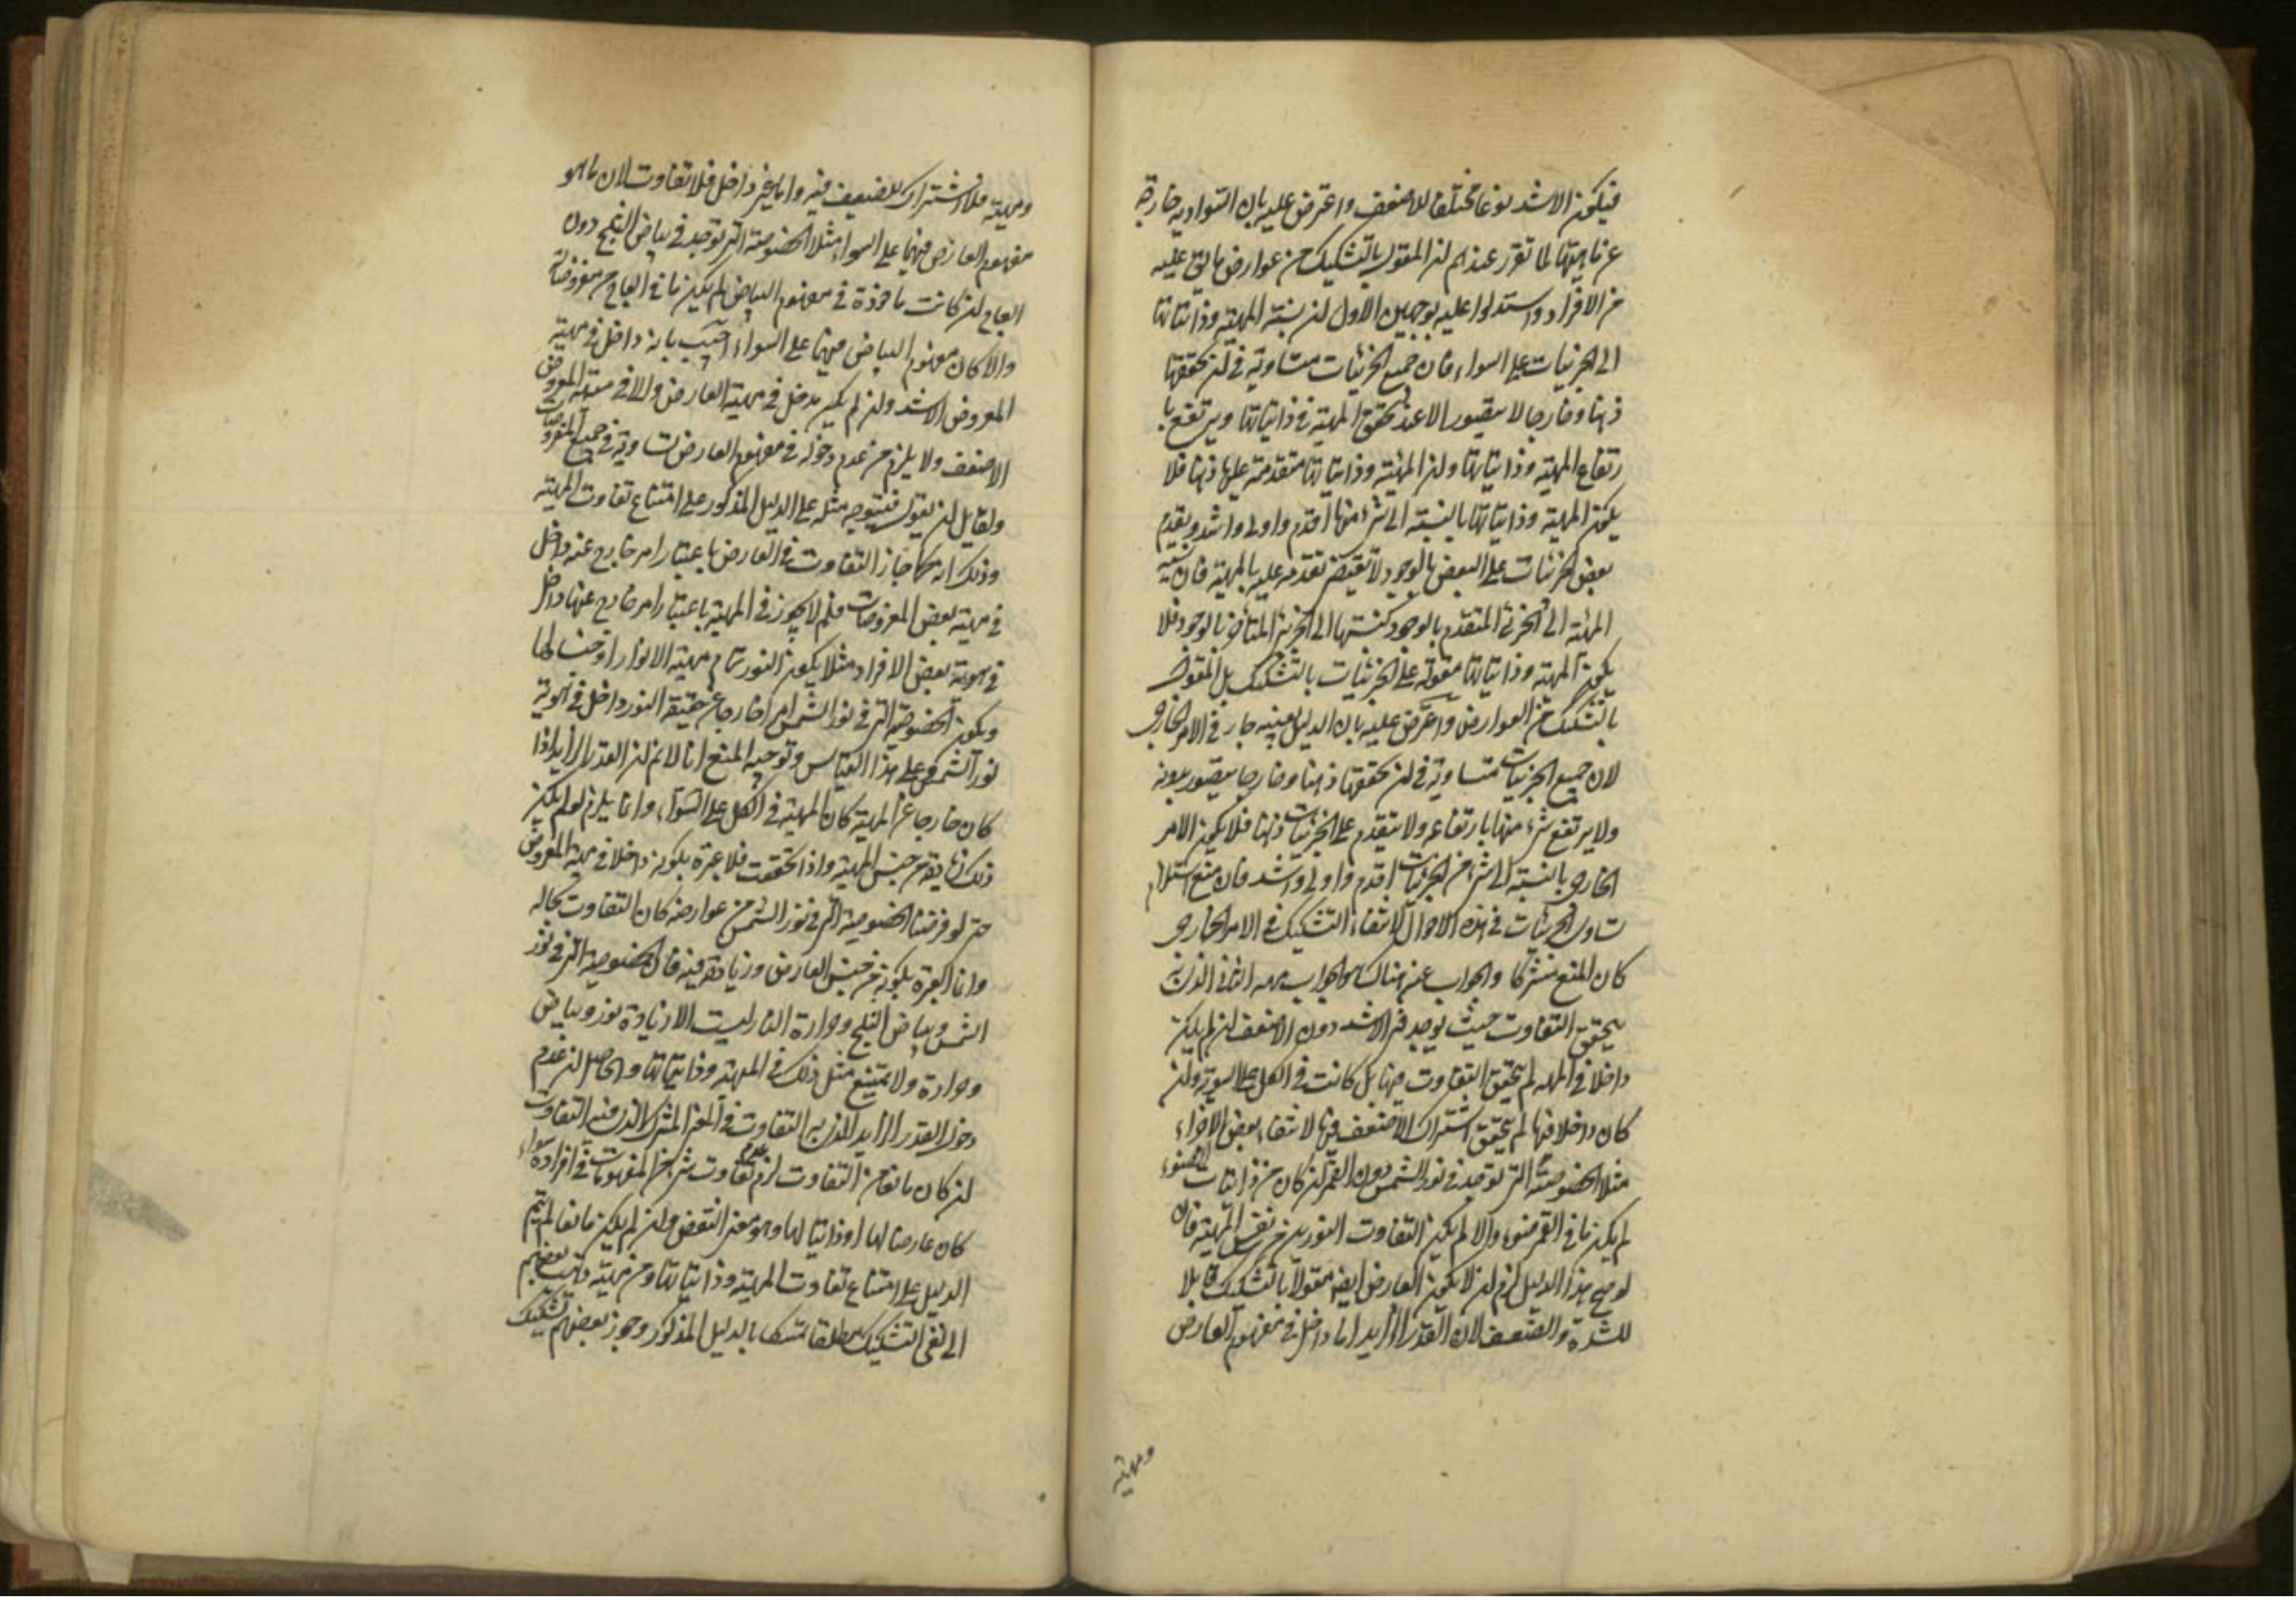 فيكون الاشد نوعا مختلفا للاضعف واعترض عليه بان السوادية خارجة
عن ماهيتها لما تقرر عندهم ان المقول بالتشكيك من عوارض ما يق عليه
من الافراد واستدلوا عليه بوجهين الاول ان نسبة المهية وذاتياتها
الى الجزئيات على السواء فان جميع الجزئيات متساوية في ان تحققها
ذهنا وخارجا لا يتصور الا عند تحقق المهية وذاتياتها ويرتفع با
رتفاع المهية وذاتياتها وان المهية وذاتياتها متقدمة عليها ذهنا فلا
يكون المهية وذاتياتها بالنسبة الى شئ منها اقدم واولى واشد وتقدم
بعض الجزئيات على البعض بالوجود لا يقتضي تقدمه عليه بالمهية فان نسبة
المهية الى الجزئي المتقدم بالوجود كنسبتها الى الجزئي المتأخر بالوجود فلا
يكون المهية وذاتياتها مقولة على الجزئيات بالتشكيك بل المقول
بالتشكيك من العوارض واعترض عليه بان الدليل بعينه جار في الامر الخارجي
لان جميع الجزئيات متساوية في ان تحققها ذهنا وخارجا يتصور بدونه
ولا يرتفع شئ منها بارتفاعه ولا يتقدم على الجزئيات ذهنا فلا يكون الامر
الخارجي بالنسبة الى شئ من الجزئيات اقدم واولى واشد فان منع استلزام
تساوي الجزئيات في هذه الاحوال لانتفاء التشكيك في الامر الخارجي
كان المنع مشتركا والجواب عن هناك هو الجواب الثاني الذي
يتحقق التفاوت حيث يوجد في الاشد دون الاضعف ان لم يكن
داخلا في المهية لم يتحقق التفاوت فيها بل كانت في الكل على السوية وان
كان داخلا فيها لم يتحقق اشتراك الاضعف فيها لانتفاء بعض الاجزاء
مثلا الخصوصية التي توجد في نور الشمس دون القمر ان كان من ذاتيات الضوء
لم يكن ما في القمر ضوء والا لم يكن التفاوت النورين في نفس المهية فان
لو صح هذا الدليل لزم ان لا يكون العارض ايضا مقولا بالتشكيك قابلا
للشدة والضعف لان القدر الزايد اما داخل في مفهوم العارض
ومهيته
ومهيته فلا اشتراك للضعيف فيه واما غير داخل فلا تفاوت لان ما هو
مفهوم العارض فيهما على السواء مثلا الخصوصية التي توجد في بياض الثلج دون
العاج ان كانت ماخوذة في مفهوم البياض لم يكن ما في العاج من معروضاته
والا كان مفهوم البياض فيهما على السواء اجيب بانه داخل في مهية
المعروض الاشد وان لم يكن يدخل في مهية العارض ولا في مهية المعروض
الاضعف ولا يلزم من عدم دخوله في مفهوم العارض تساويه في جميع المعروضات
ولقايل ان يقول فيتوجه مثله على الدليل المذكور على امتناع تفاوت المهية
وذلك انه كما جاز التفاوت في العارض باعتبار امر خارج عنه داخل
في مهية بعض المعروضات فلم لا يجوز في المهية باعتبار امر خارج عنها داخل
في هوية بعض الافراد مثلا يكون النور تمام مهية الانوار او جنسا لها
ويكون الخصوصية التي في نور الشمس امرا خارجا عن حقيقة النور داخل في هوية
نور الشمس وعلى هذا القياس وتوجيه المنع انا لا نم ان القدر الزايد اذا
كان خارجا عن المهية كان المهية في الكل على السواء وانما يلزم لو لم يكن
ذلك الزايد من جنس المهية واذا تحققت فلا عبرة بكونه داخلا في مهية المعروض
حتى لو فرضنا الخصوصية التي في نور الشمس من عوارضه كان التفاوت بحاله
وانما العبرة بكونه من جنس العارض وزيادة فيه فان الخصوصية التي في نور
الشمس وبياض الثلج وحرارة النار ليست الا زيادة نور وبياض
وحرارة ولا يمتنع مثل ذلك في المهية وذاتياتها والحاصل ان عدم
دخول القدر الزايد الذي به التفاوت في المعنى المشترك الذي فيه التفاوت
ان كان مانعا من التفاوت لزم عدم تفاوت شئ من المفهومات في افراده سواء
كان عارضا لها او ذاتيا لها وهو معنى النقض وان لم يكن مانعا لم يتم
الدليل على امتناع تفاوت المهية وذاتياتها ومن ثمة ذهب بعضهم
الى نفي التشكيك مطلقا متمسكا بالدليل المذكور وجوز بعضهم تشكيك